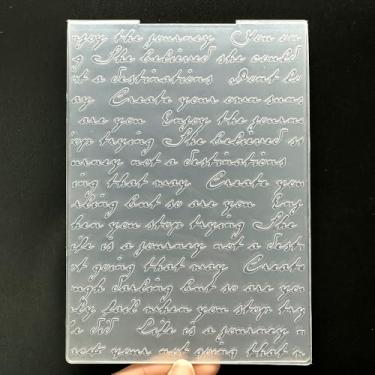 njoy the journey You on
g She believed she could
ot a destinations Dont bo
ay Create your own suns
are you Enjoy the journe
op trying She believed so
urney not a destinations
ing that may Create you
rling but so are you Enj
hen you stop trying She
ife is a journey not a dest
t going that may Create
ugh darling but so are you
ly fail when you stop try
e did Life is a journey n
your not going that m